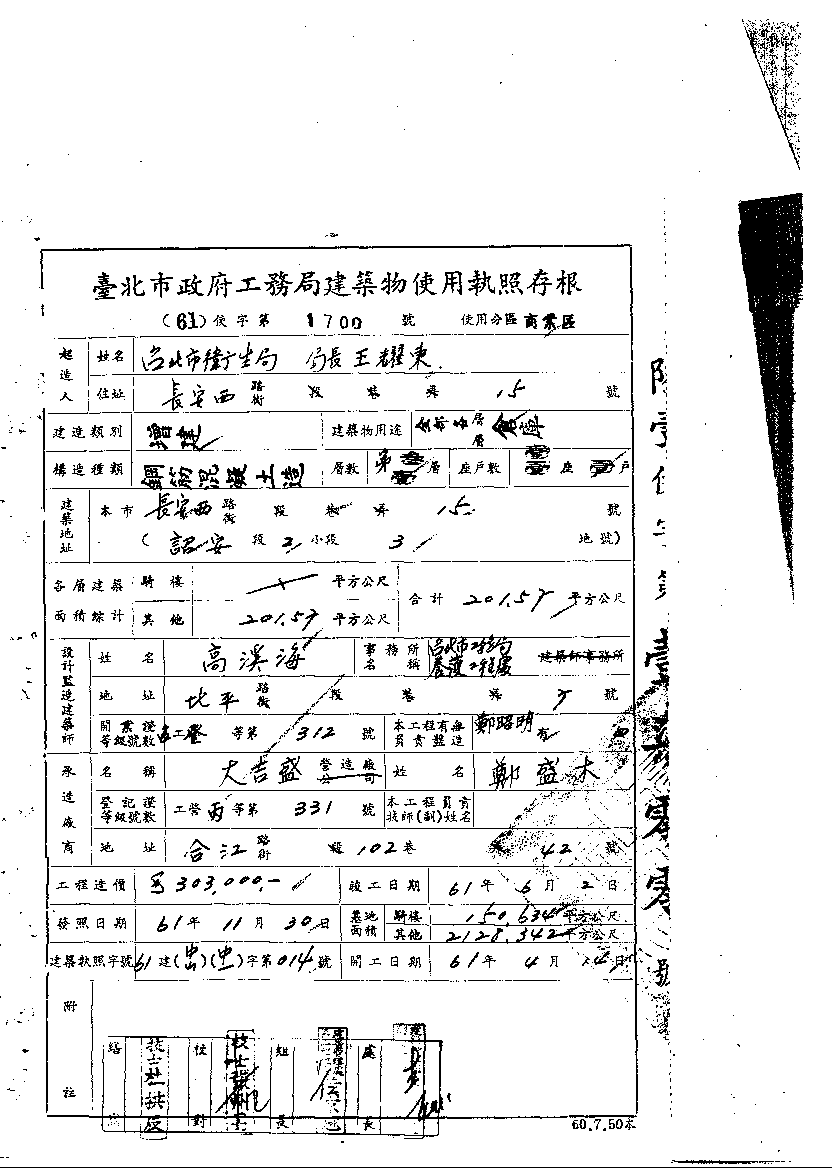 臺北市政府工務局建築物使用執照存根
(61)使字第 1700 號 使用分區 商業區
起造人 姓名 台北市衛生局 局長王耀東
住址 長安西 路街 段 巷 弄 15 號
建造類別 增建 建築物用途 層層 倉庫
構造種類 鋼筋混凝土造 層數 第 層 座戶數 壹 座 戶
建築地址 本市 長安西 路街 段 巷 弄 15 號
( 詔安 段 2 小段 3 地號)
各層建築面積綜計 騎樓 平方公尺 合計 201.57 平方公尺
其他 201.57 平方公尺
設計監造建築師 姓名 高溪海 事務所名稱 台北市工務局養護工程處 建築師事務所
地址 北平 路街 段 巷 弄 號
開業證等級號數 工登 等第 312 號 本工程有無員責監造 鄭昭明 有
承造廠商 名稱 大吉盛 營造廠公司 姓名 鄭盛木
登記證等級號數 工營 丙 等第 331 號 本工程員責技師(副)姓名
地址 合江 路街 段 102 巷 弄 42 號
工程造價 303,000.- 竣工日期 61 年 6 月 2 日
發照日期 61 年 11 月 30 日 基地面積 騎樓 150.634 平方公尺
其他 2128.342 平方公尺
建築執照字號 61 建( )( )字第 014 號 開工日期 61 年 4 月 14 日
附註
校對 技士 組長 處長
60.7.50本